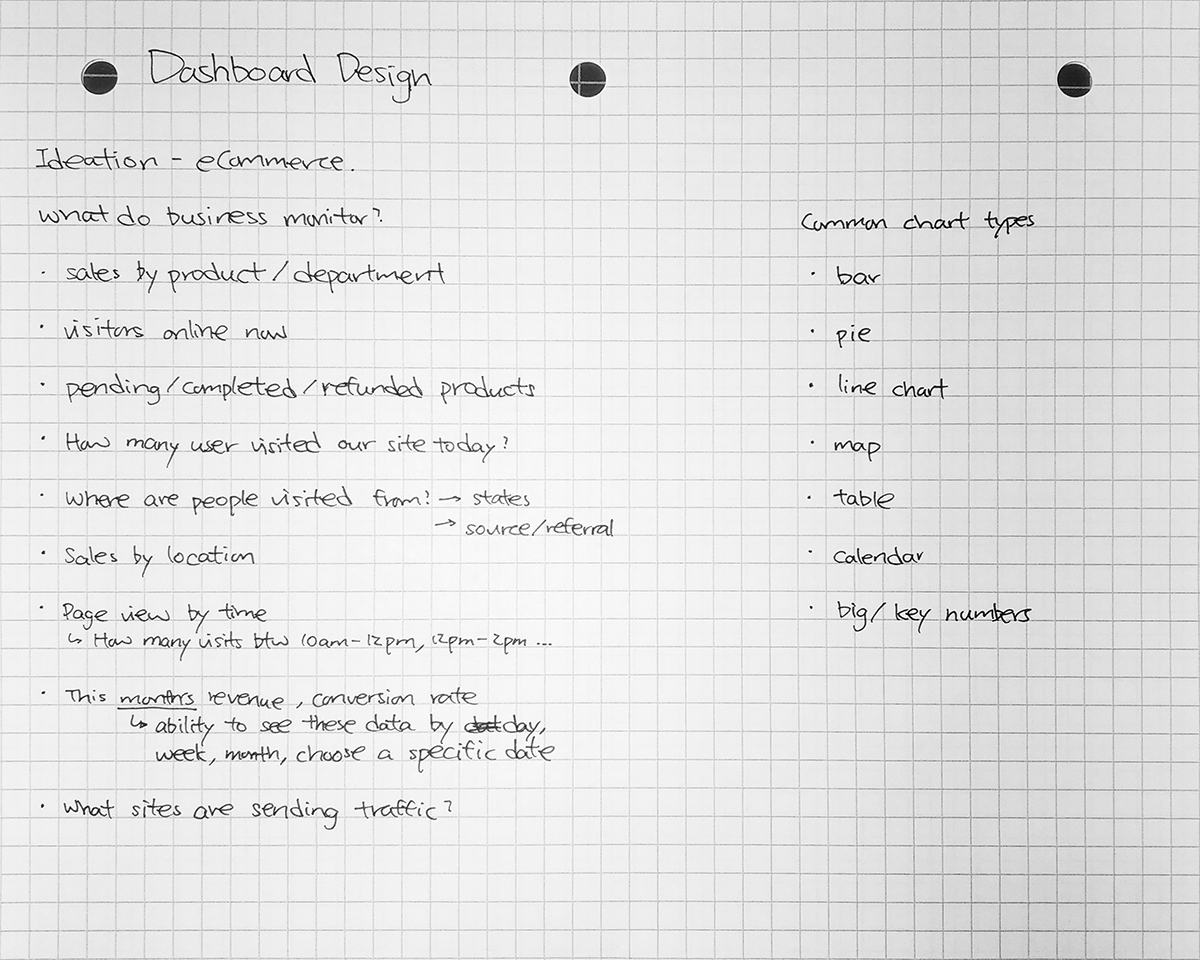 Dashboard Design
Ideation - eCommerce.
What do business monitor?
· sales by product / department
· visitors online now
· pending/completed/refunded products
· How many user visited our site today?
· Where are people visited from? → states
→ source/referral
· Sales by location
· Page view by time
↳ How many visits btw 10am-12pm, 12pm-2pm ...
· This months revenue, conversion rate
↳ ability to see these data by day,
week, month, choose a specific date
· What sites are sending traffic?
Common chart types
· bar
· pie
· line chart
· map
· table
· calendar
· big/key numbers